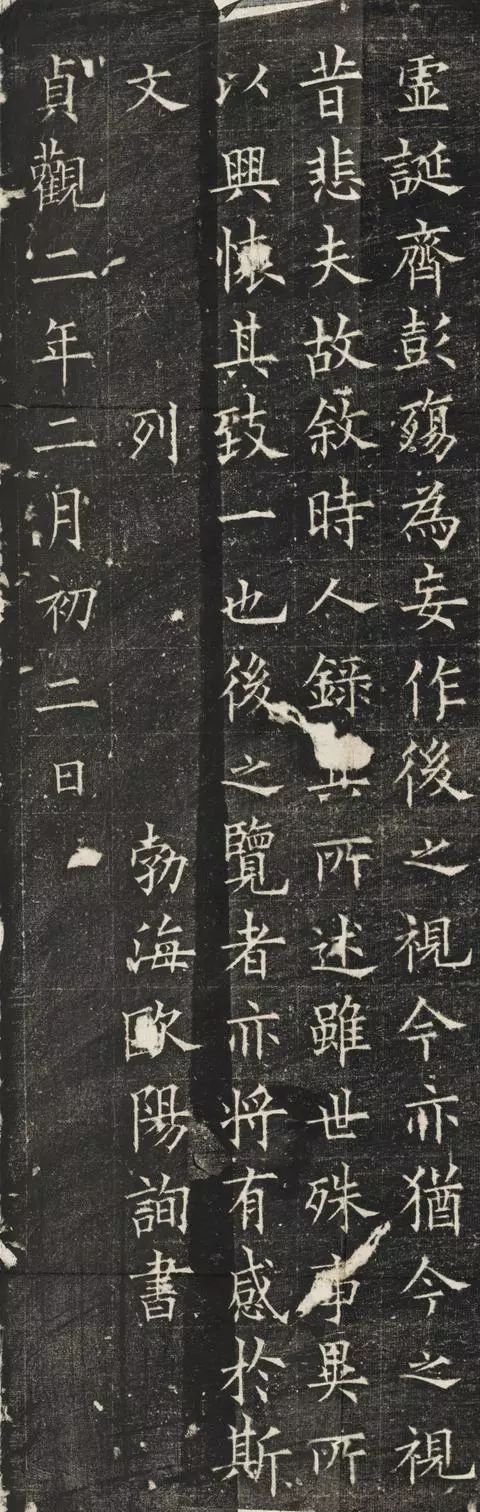 虛誕齊彭殤為妄作後之視今亦猶今之視
昔悲夫故敘時人錄其所述雖世殊事異所
以興懷其致一也後之覽者亦將有感於斯
文 列 勃海歐陽詢書
貞觀二年二月初二日